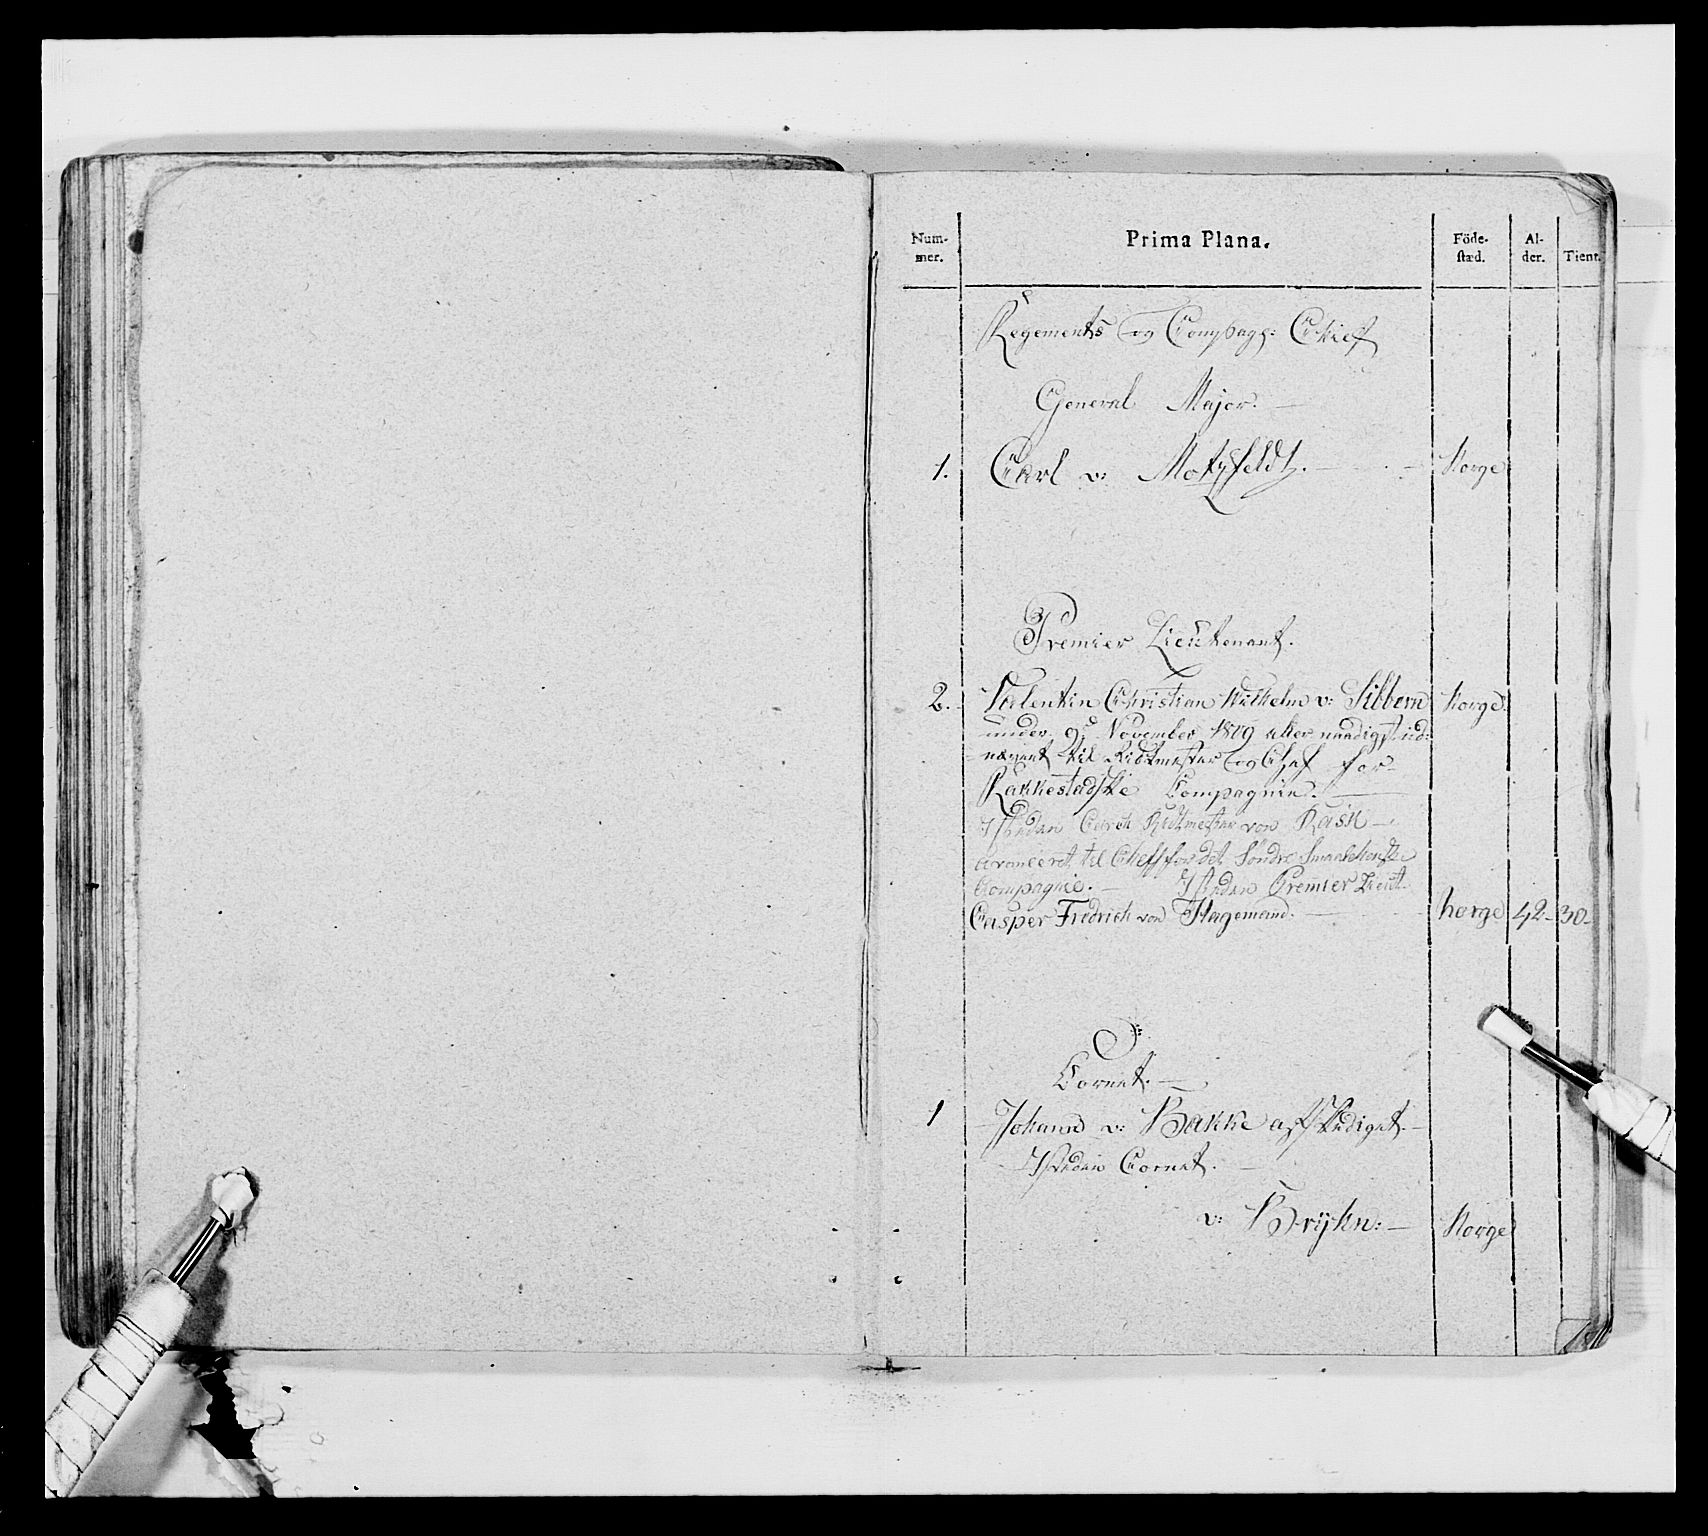 Num-
mer.
Prima Plana.
Föde-
stæd.
Al-
der.
Tient.
Regements og Compags: Chief
General Major.
1. Carl v: Motzfeldt. Norge
Premier Lieutenant.
2. Valentin Christian Wilhelm v: Sibbern Norge
under 9d November 1809 aller naadigst ud-
nævnt til Ridtmester og Chef for
Rakkestadske Compagnie.
Isteden Ridtmester von Rask
avanceret til Cheff for det Søndre Smaalehnske
Compagnie. Isteden Premier Lieut.
Casper Fredrich von Hagemand. Norge 42 30
Cornet.
1 Johann v: Bakke afskediget.
Isteden Cornet.
v: Brijhn: Norge